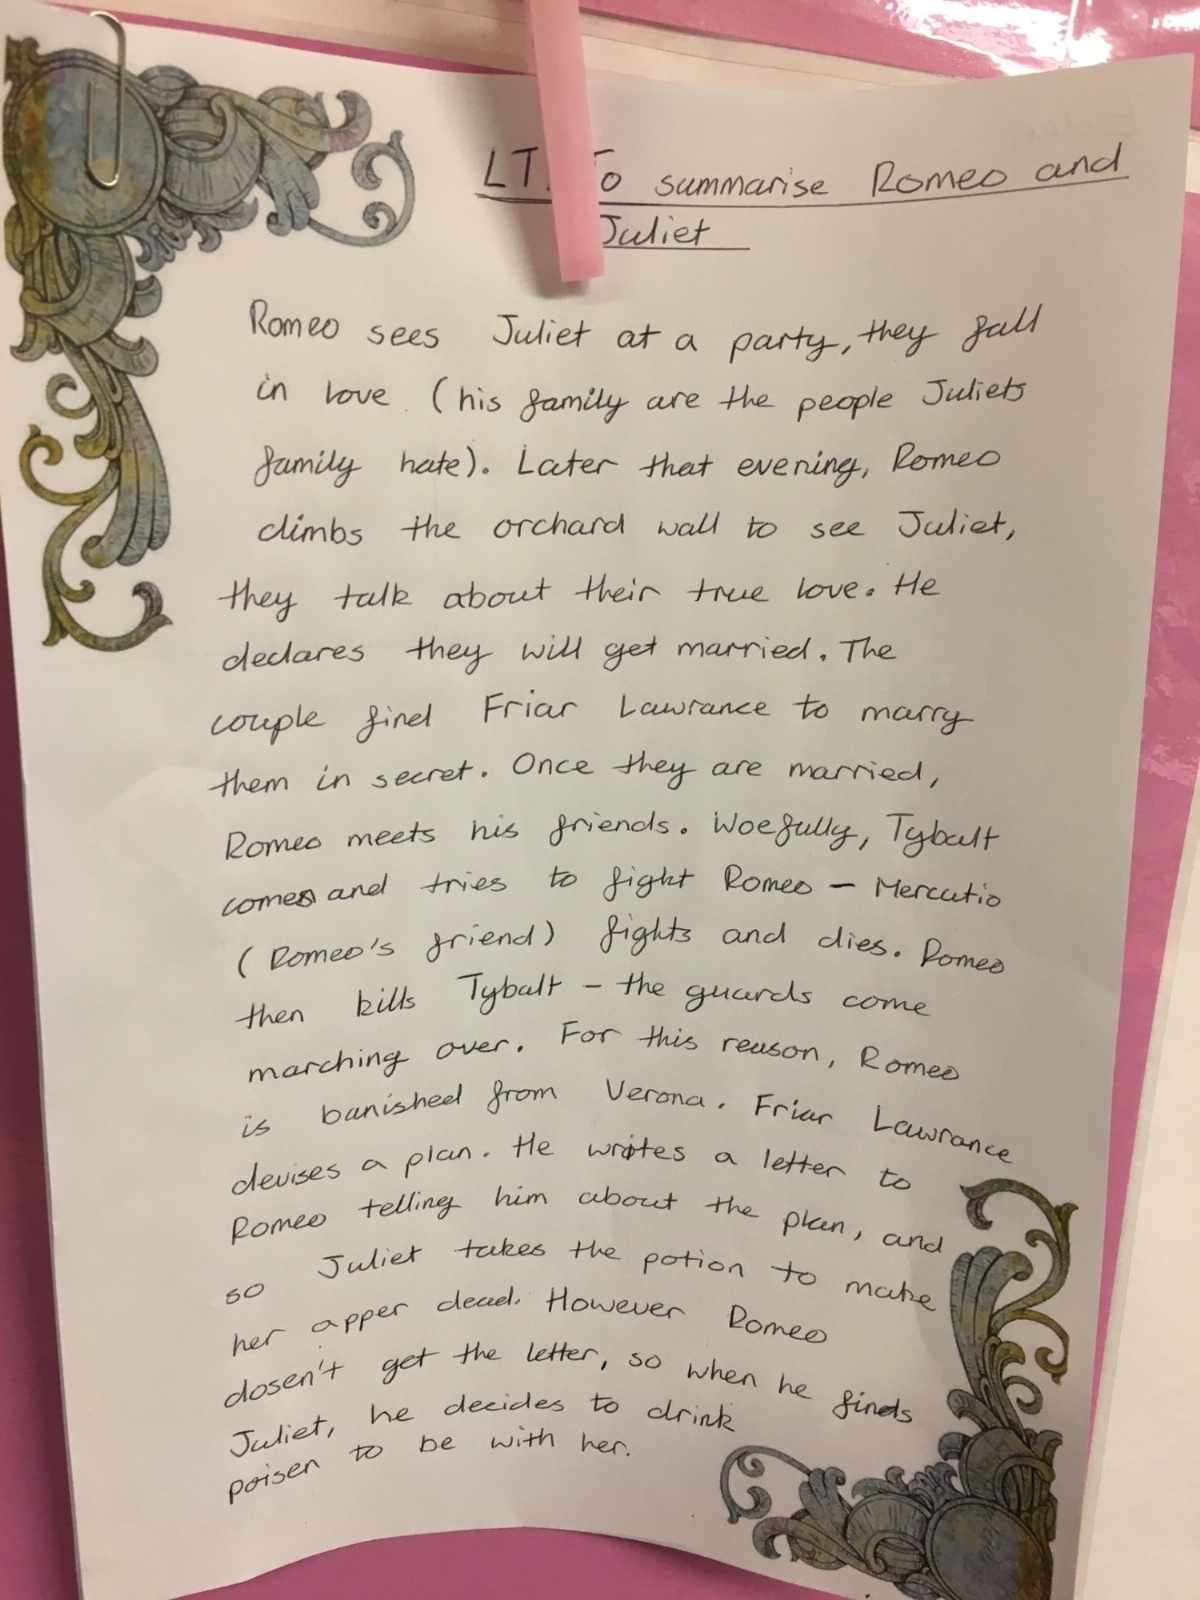 LT. To summarise Romeo and
Juliet
Romeo sees Juliet at a party, they fall
in love (his family are the people Juliets
family hate). Later that evening, Romeo
climbs the orchard wall to see Juliet,
they talk about their true love. He
declares they will get married. The
couple find Friar Lawrance to marry
them in secret. Once they are married,
Romeo meets his friends. Woefully, Tybalt
comes and tries to fight Romeo - Mercutio
(Romeo's friend) fights and dies. Romeo
then kills Tybalt - the guards come
marching over. For this reason, Romeo
is banished from Verona. Friar Lawrance
devises a plan. He writes a letter to
Romeo telling him about the plan, and
so Juliet takes the potion to make
her apper dead. However Romeo
dosen't get the letter, so when he finds
Juliet, he decides to drink
poisen to be with her.